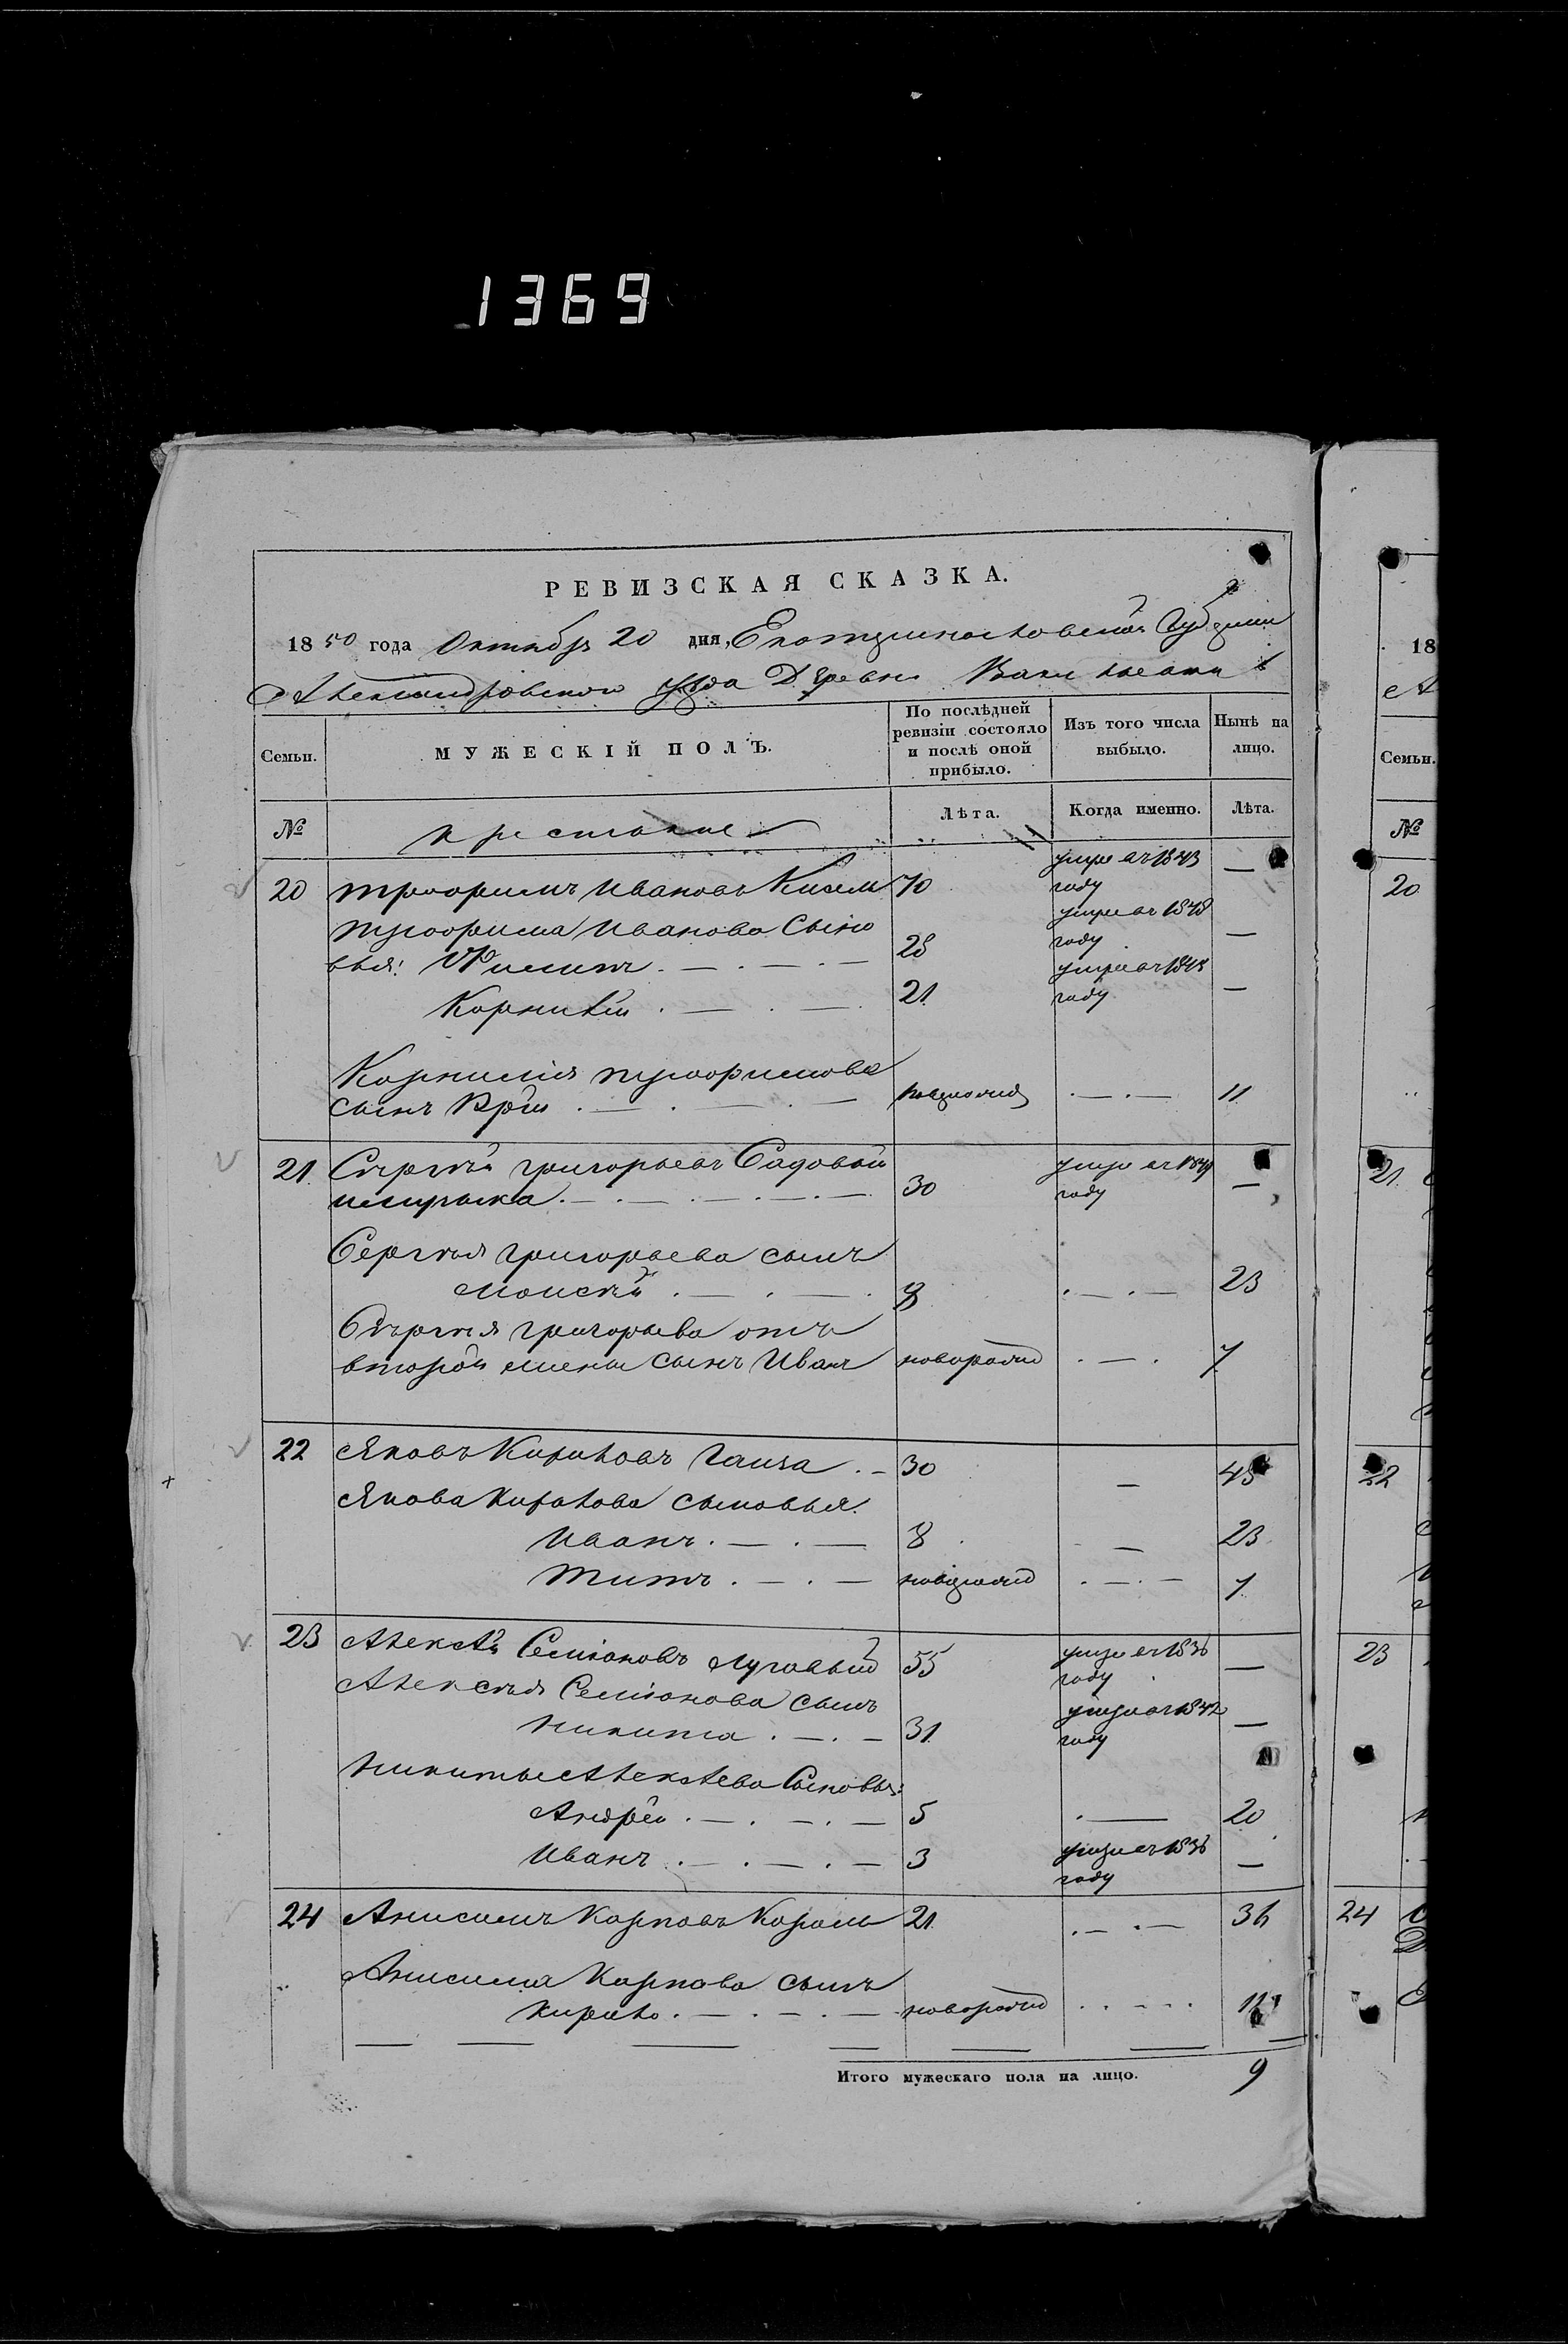 1369
РЕВИЗСКАЯ СКАЗКА.
1850 года Октября 20 дня, Екатеринославской Губернии
Александровского уѣзда Деревни
Семьи. МУЖЕСКІЙ ПОЛЪ. По послѣдней ревизіи состояло и послѣ оной прибыло. Изъ того числа выбыло. Нынѣ на лицо.
№ крестьяне Лѣта. Когда именно. Лѣта.
20 Трофимъ Ивановъ 70 умре въ 1843 году —
Трофима Иванова Сыно
вья: Филипъ 28 умре въ 1848 году —
Корнилій 21 умре въ году —
Корнилія Трофимова
сынъ новорожд 11
21 Сергѣй Григорьевъ Садовой
30 умре въ году —
Сергѣя Григорьева сынъ
Моисѣй 8 23
Сергѣя Григорьева отъ
второй жены сынъ Иванъ новорожд 7
22 Яковъ Кириловъ 30 — 45
Якова Кирилова сыновья.
Иванъ 8 — 23
Титъ новорожд 7
23 Алексѣй Семіоновъ Луговый 55 умре въ 1836 году —
Алексѣя Семіонова сынъ
Никита 31 умре въ 1842 году —
Никиты Алексѣева Сыновья:
Андрей 5 20
Иванъ 3 умре въ 1836 году —
24 Анисимъ Карповъ Король 21 36
Анисима Карпова сынъ
Кирило новорожд 11
Итого мужескаго пола на лицо. 9
18
А
Семьи.
№
20
21
22
23
24